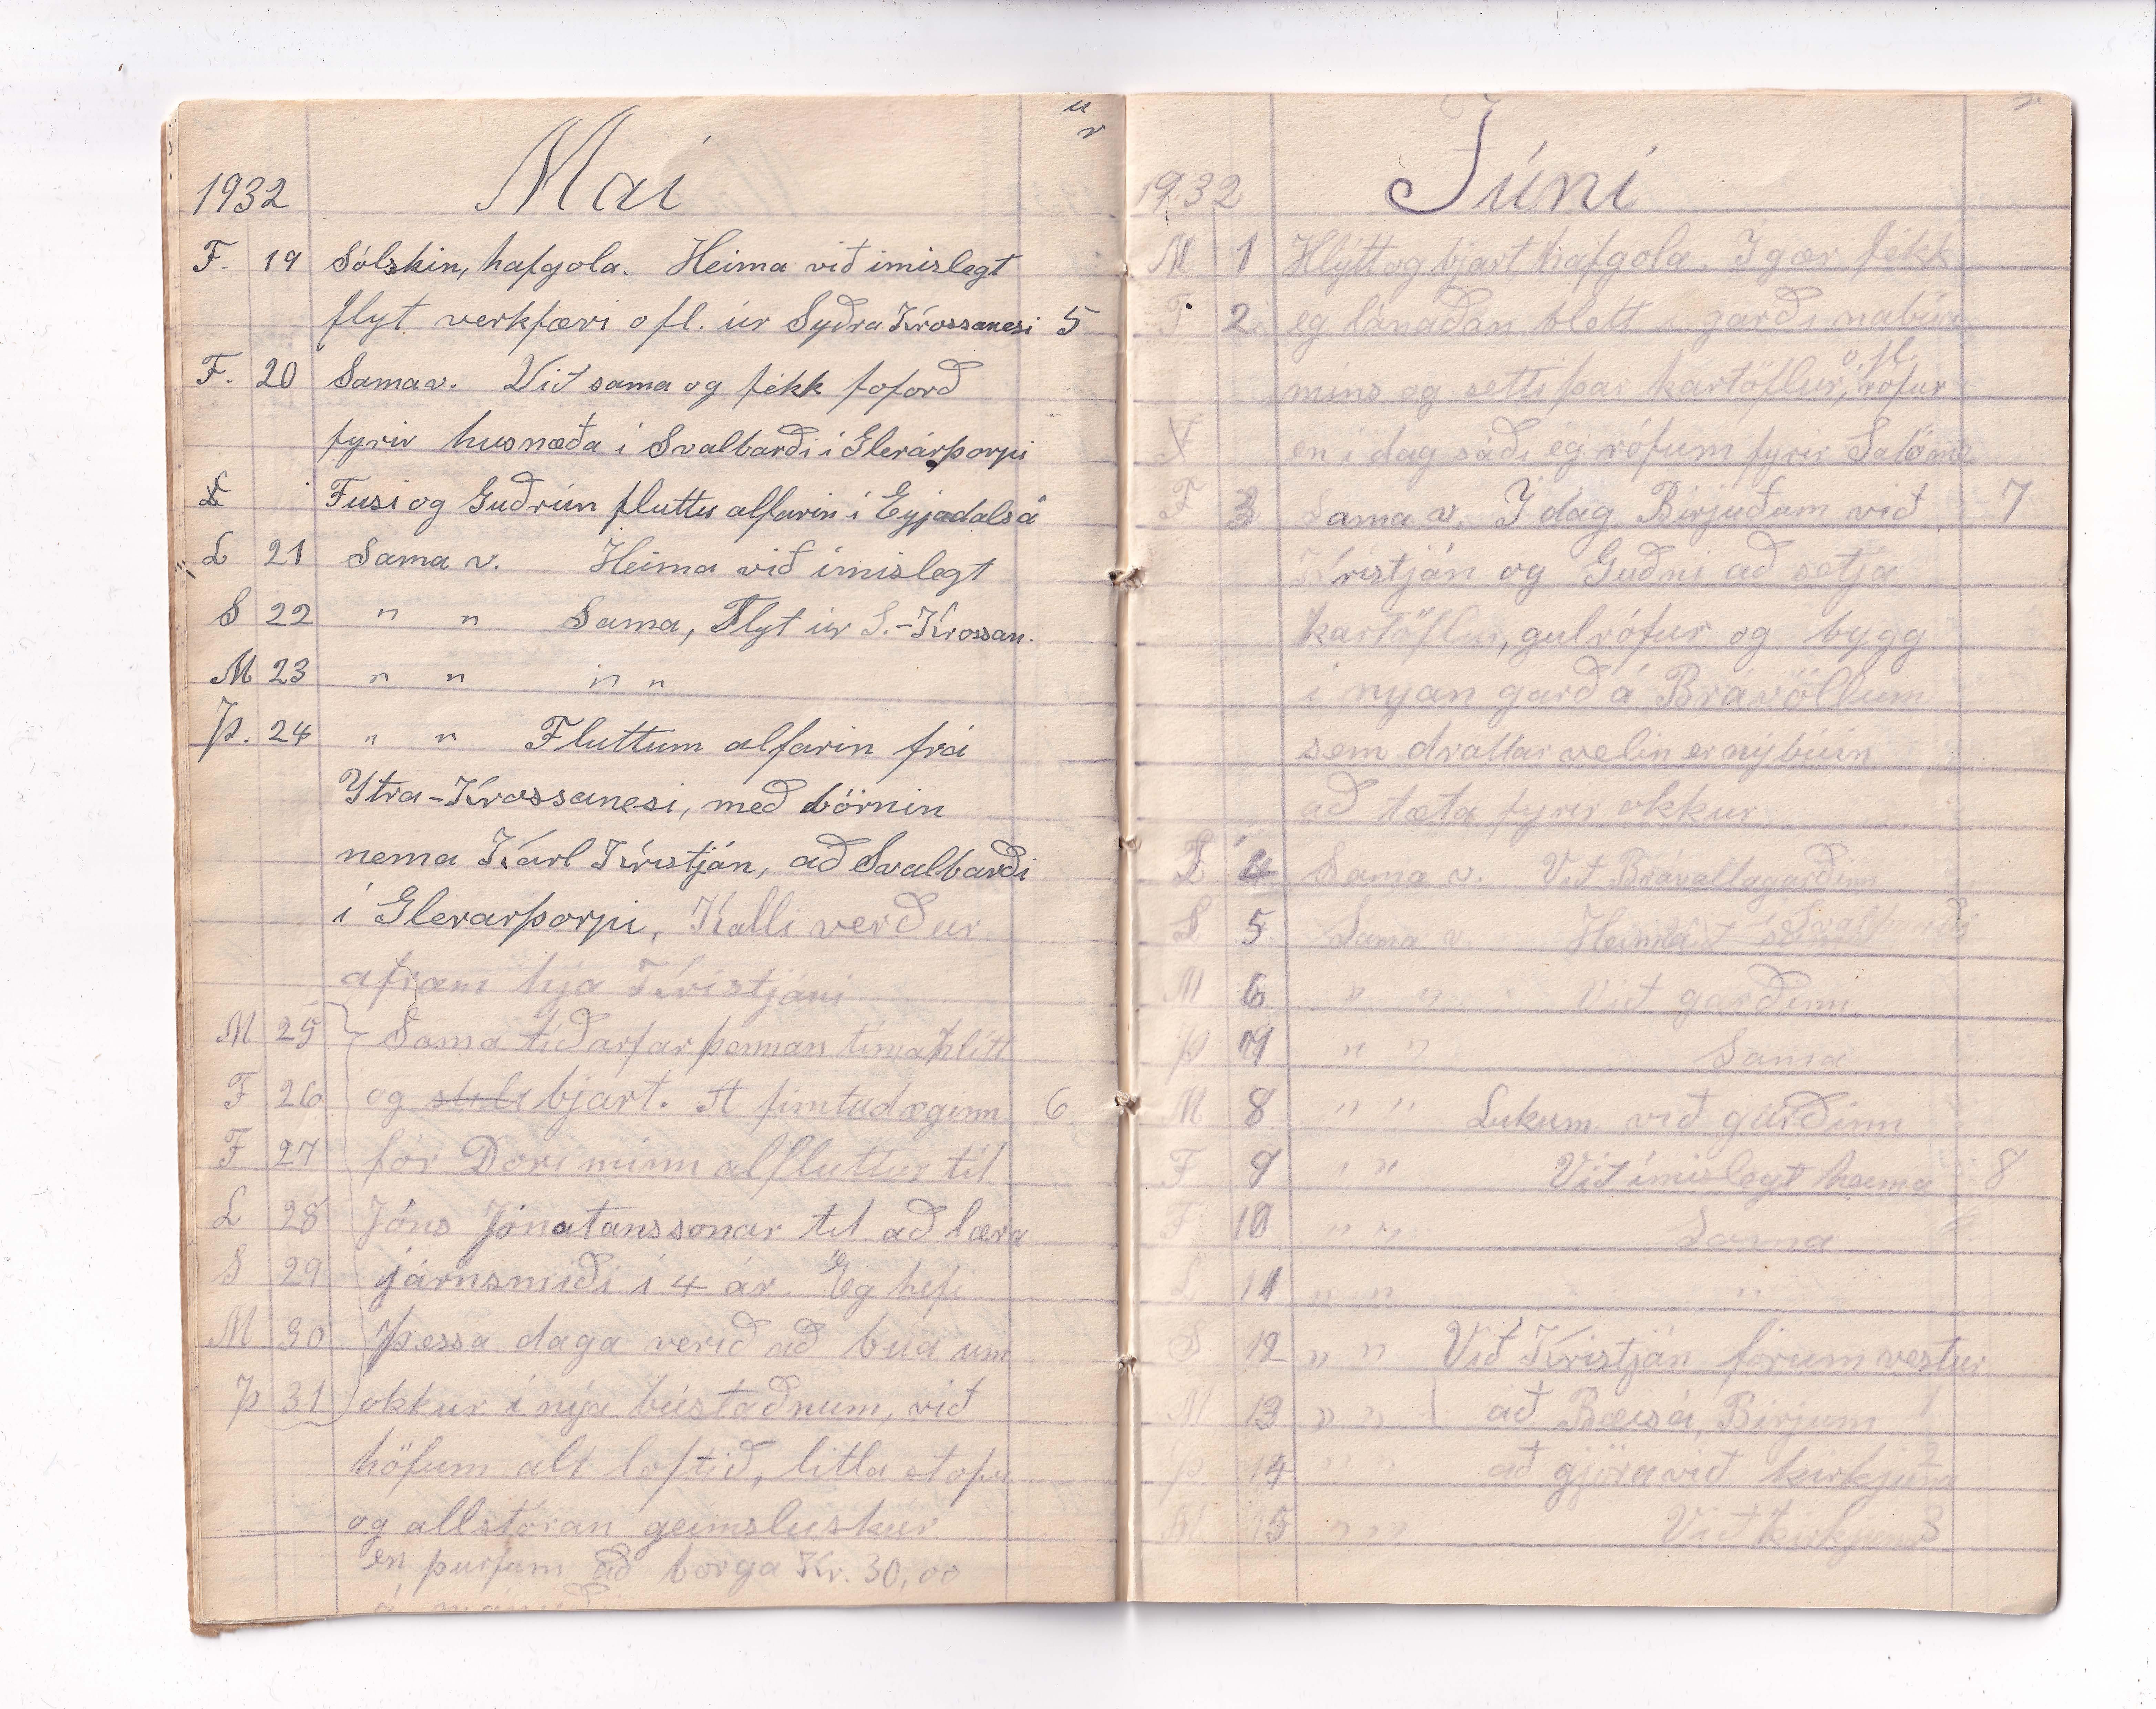 u
v
1932 Mai
F. 19 Sólskin, hafgola. Heima við imislegt
flyt verkfæri ofl. úr Syðra Krossanesi 5
F. 20 Sama v. Við sama og fékk foforð
fyrir husnæða i Svalbarði i Glerárþorpi
L Fusi og Guðrún fluttu alfarin i Eyjadalsá
L 21 Sama v. Heima við ímislegt
S 22 " " Sama, Flyt úr S.-Krossan.
M 23 " " " "
Þ. 24 " " Fluttum alfarin frá
Ytra-Krossanesi, með börnin
nema Karl Kristján, að Svalbarði
i Glerarþorpi, Kalli verður
afram hja Kristjáni
M 25 Sama tiðarfar þennan tima hlítt
F 26 og bjart. A fimtudæginn 6
F 27 fór Dori minn alfluttur til
L 28 Jóns Jónatanssonar til að læra
S 29 járnsmiði i 4 ár. Eg hefi
M 30 Þessa daga verið að búa um
Þ 31 okkur i nýja bústaðnum, við
höfum alt loftið, litla stofu
og allstóran geimsluskúr
en þurfum að borga Kr. 30,00
á mánuði
1932 Júní
M 1 Hlýtt og bjart hafgola. I gær fékk
F 2 eg lánaðan blett i garði nabúa
o.fl.
mins og setti þar kartöflur, rófur
en i dag sáði eg rófum fyrir Salóme
F 3 Sama v. I dag Birjuðum við 7
Kristján og Guðni að setja
kartöflur, gulrófur og bygg
i nyan garð á Bravöllum
sem drattar velin er nýbúin
að tæta fyrir okkur
L 4 Sama v. Við Brávallagarðinn
S 5 Sama v. Heima í Svalbarði
M 6 " " Við garðinn
Þ 7 " " Sama
M 8 " " Lukum við garðinn
F 9 " " Við ímislegt heima 8
F 10 " " Sama
L 11 " " "
S 12 " " Við Kristján fórum vestur
M 13 " " að Bæisá, Birjum 1
Þ 14 " " að gjöra við kirkjuna 2
M 15 " " Við kirkjuna 3